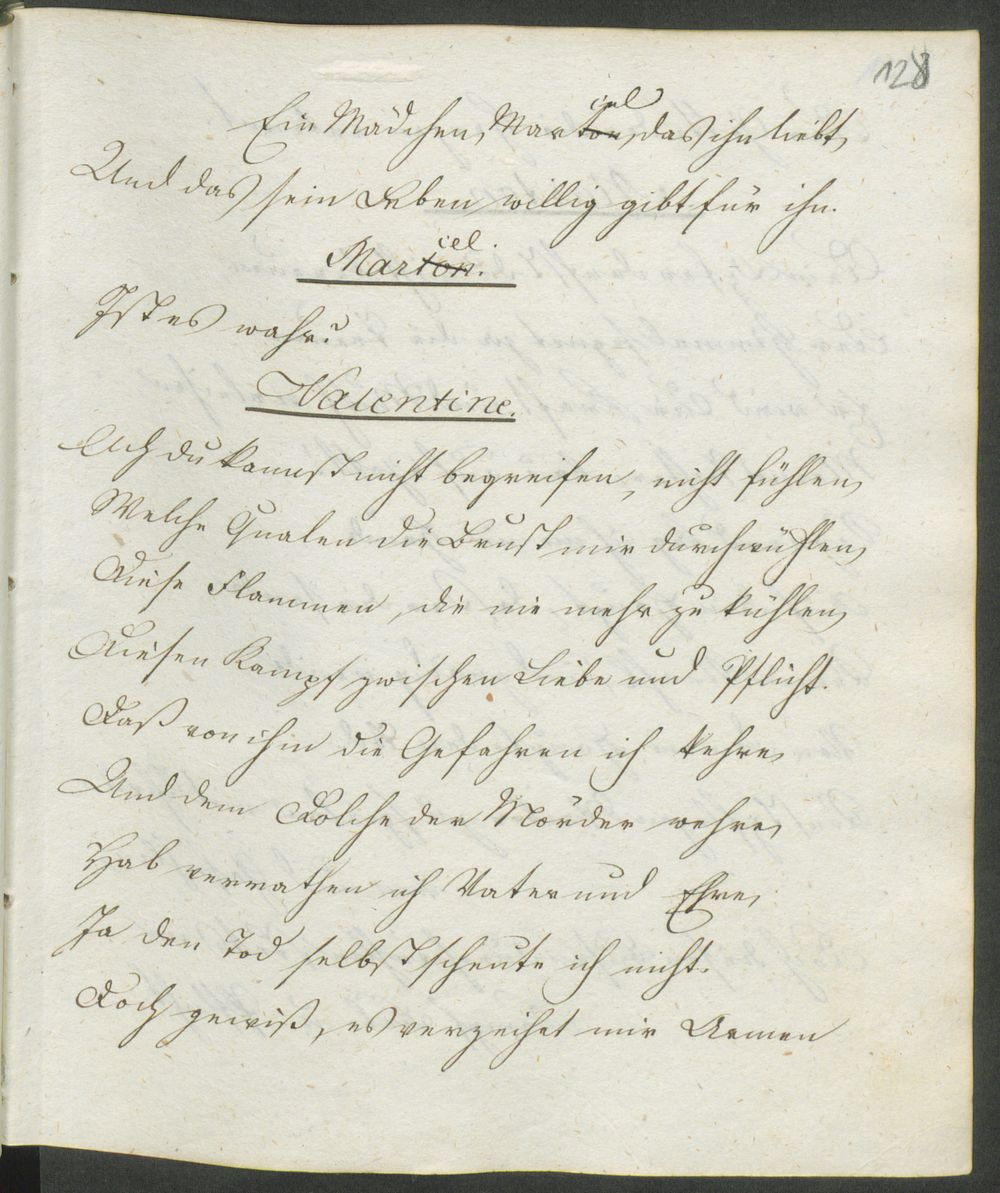 128
Ein Mädchen, Marton, das ihn liebt,
ciel
Und das sein Leben willig gibt für ihn.
Marton.
ciel.
Ist es wahr?
Valentine.
Ach du kannst nicht begreifen, nicht fühlen,
Welche Qualen die Brust mir durchwühlen,
Diese Flammen, die nie mehr zu kühlen,
Diesen Kampf zwischen Liebe und Pflicht.
Daß von ihm die Gefahren ich kehre,
Und dem Dolche der Mörder wehre,
Hab verrathen ich Vater und Ehre,
Ja den Tod selbst scheute ich nicht.
Doch gewiß, es verzeihet mir Armen